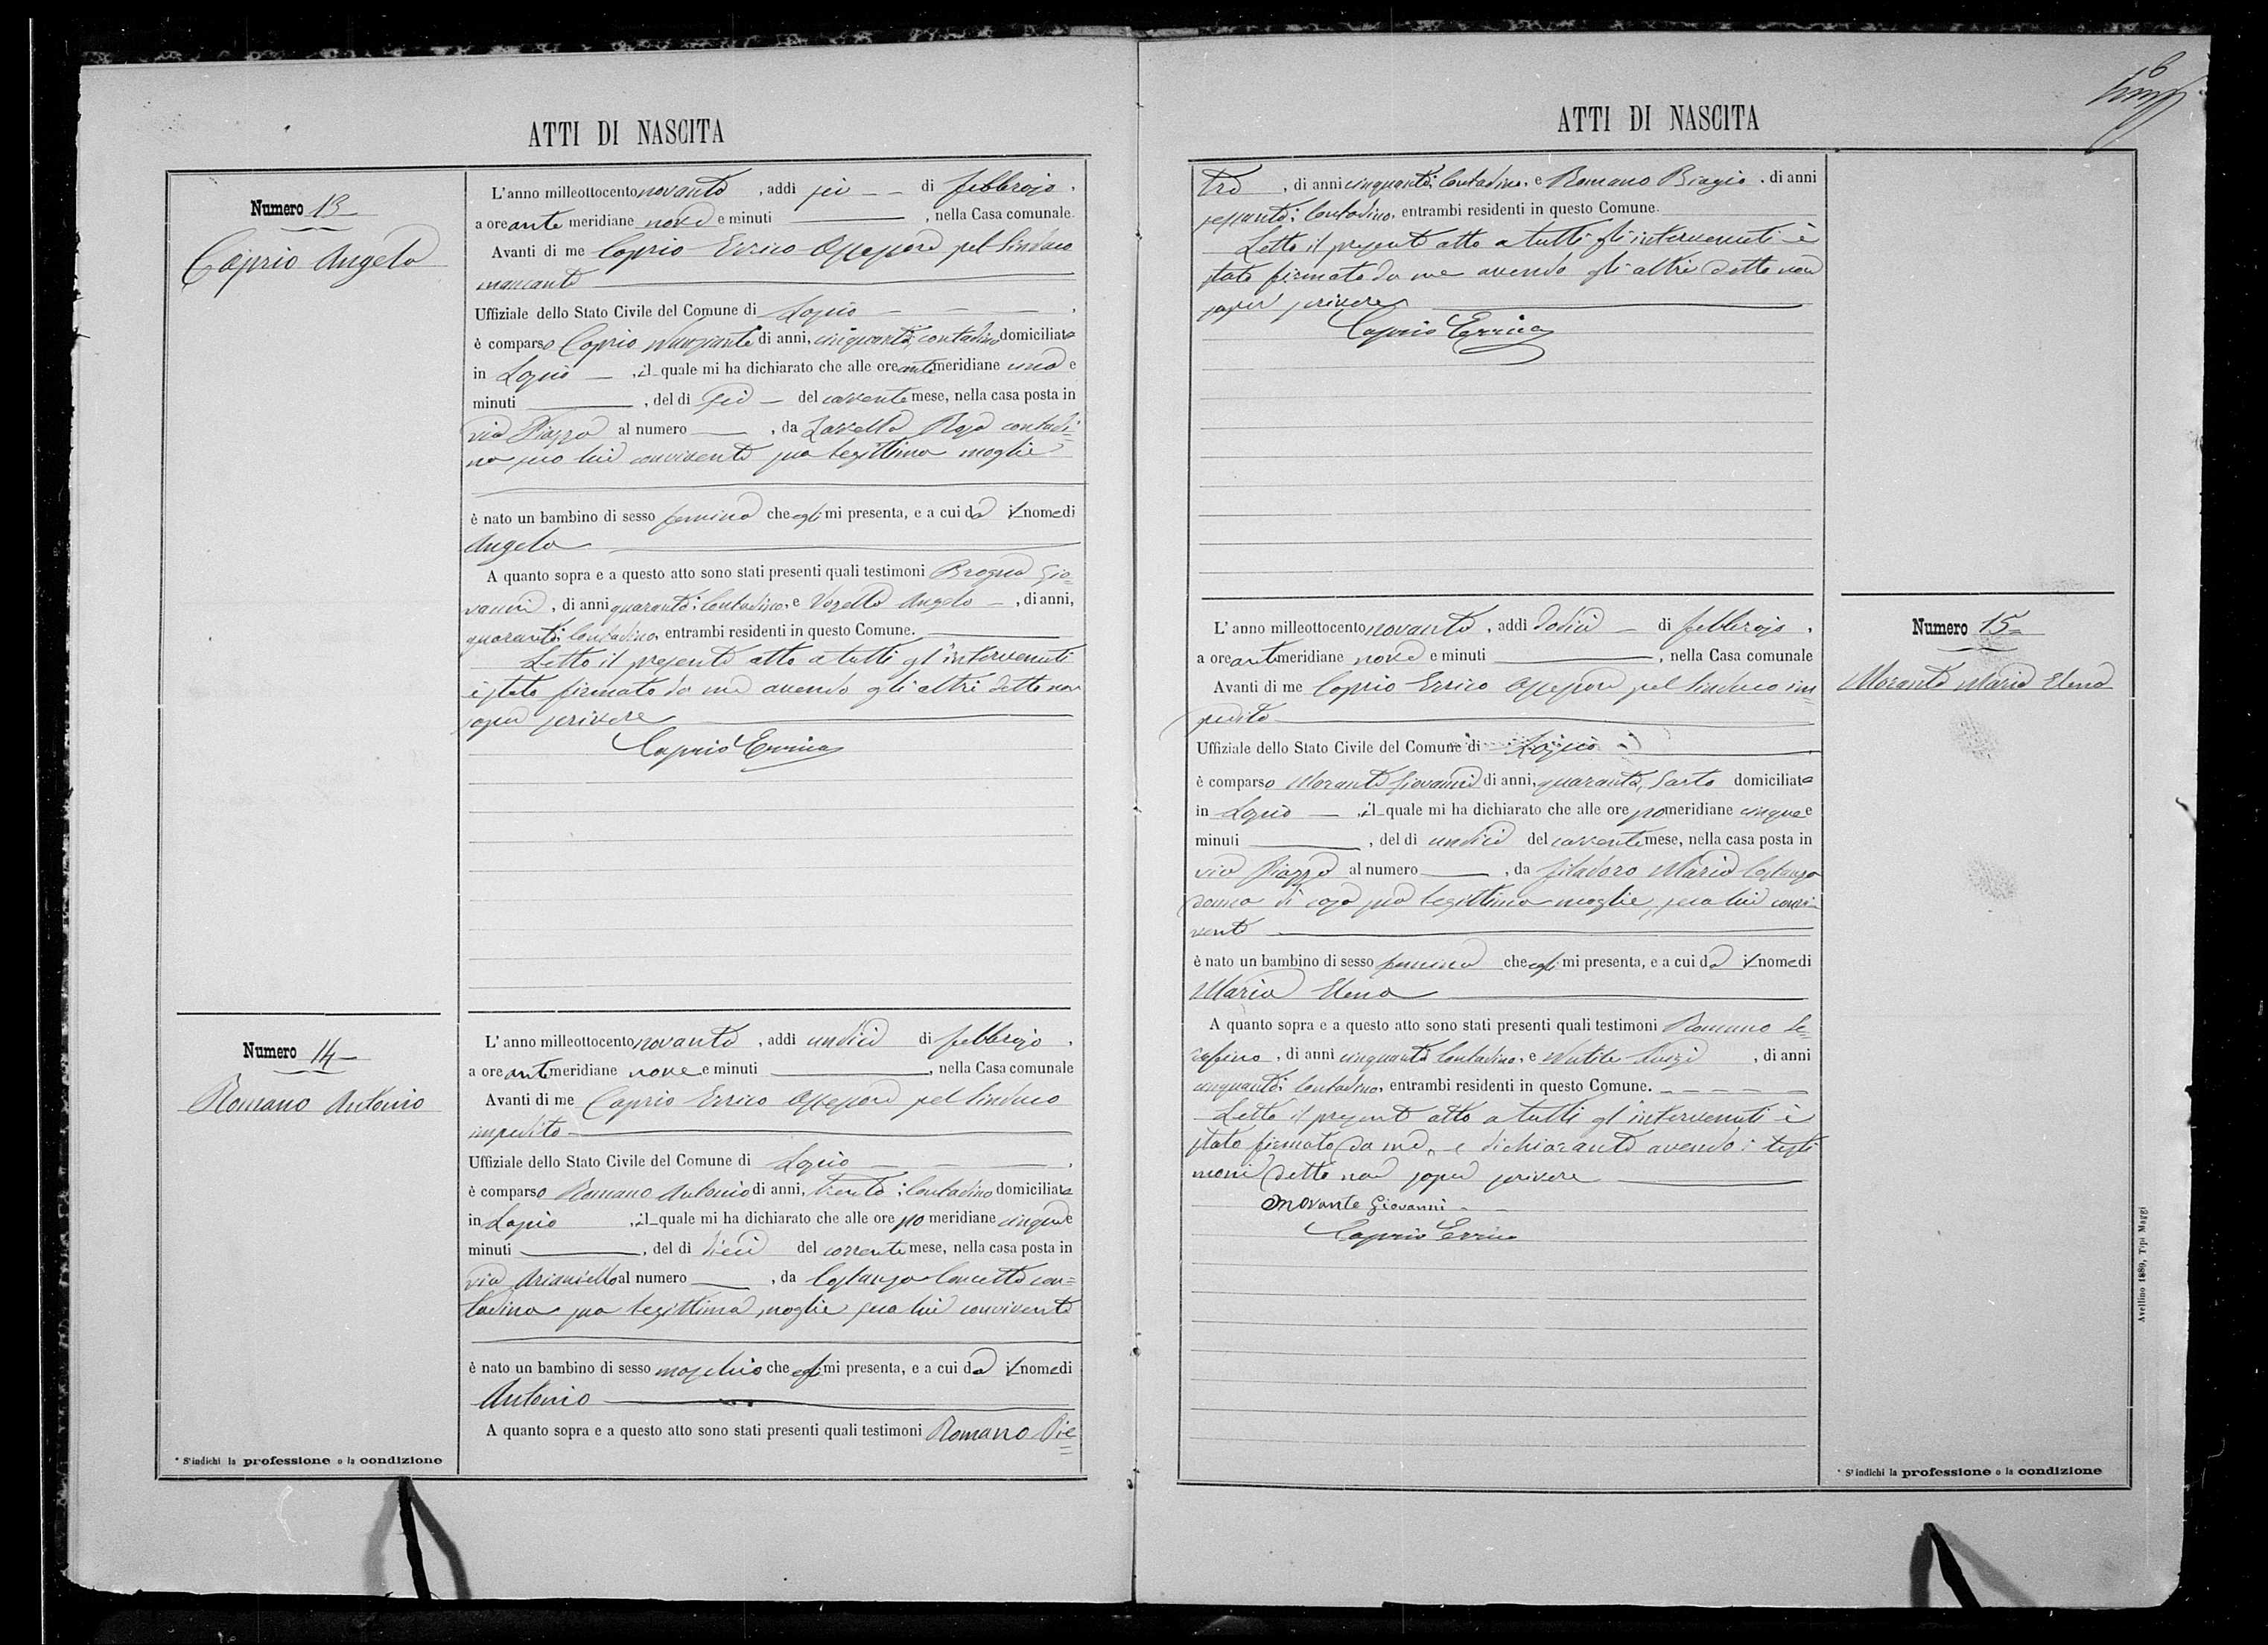 ATTI DI NASCITA
Numero 13
Caprio Angela
L'anno milleottocento novanta, addì sei di febbrajo,
a ore ante meridiane nove e minuti, nella Casa comunale.
Avanti di me Caprio Errico Assessore pel Sindaco
mancante
Uffiziale dello Stato Civile del Comune di Lapio
è comparso Caprio Nunziante di anni, cinquanta, contadino domiciliato
in Lapio, il quale mi ha dichiarato che alle ore ante meridiane una e
minuti, del dì sei del corrente mese, nella casa posta in
via Piazza al numero, da Zarella Rosa contadi=
na seco lui convivente sua legittima moglie
è nato un bambino di sesso femina che egli mi presenta, e a cui da il nome di
Angela
A quanto sopra e a questo atto sono stati presenti quali testimoni Brogna Gio=
vanni, di anni quaranta, Contadino, e Angelo, di anni,
quaranta, Contadino, entrambi residenti in questo Comune.
Letto il presente atto a tutti gl'intervenuti
è stato firmato da me avendo gli altri detto non
saper scrivere
Caprio Errico
Numero 14
Romano Antonio
L'anno milleottocento novanta, addì undici di febbrajo,
a ore antimeridiane nove e minuti, nella Casa comunale
Avanti di me Caprio Errico Assessore pel Sindaco
impedito
Uffiziale dello Stato Civile del Comune di Lapio,
è comparso Romano Antonio di anni, trenta, Contadino domiciliato
in Lapio, il quale mi ha dichiarato che alle ore pomeridiane cinque e
minuti, del dì dieci del corrente mese, nella casa posta in
via Arianiello al numero, da Costanza Concetta con=
tadina sua legittima moglie seco lui convivente
è nato un bambino di sesso maschio che egli mi presenta, e a cui da il nome di
Antonio
A quanto sopra e a questo atto sono stati presenti quali testimoni Romano Pie=
* S'indichi la professione o la condizione
6
ATTI DI NASCITA
tro, di anni cinquanta, Contadino, e Romano Biagio, di anni
sessanta, Contadino, entrambi residenti in questo Comune.
Letto il presente atto a tutti gli intervenuti è
stato firmato da me avendo gli altri detto non
saper scrivere
Caprio Errico
Numero 15
Morante Maria Elena
L'anno milleottocento novanta, addì dodici di febbrajo,
a ore antimeridiane nove e minuti, nella Casa comunale
Avanti di me Caprio Errico Assessore pel Sindaco im=
pedito
Uffiziale dello Stato Civile del Comune di Lapio
è comparso Morante Giovanni di anni, quaranta, Sarto domiciliato
in Lapio, il quale mi ha dichiarato che alle ore pomeridiane cinque e
minuti, del dì undici del corrente mese, nella casa posta in
via Piazza al numero, da Filadoro Maria Costanza
donna di casa sua legittima moglie, seco lui convi=
vente
è nato un bambino di sesso femina che egli mi presenta, e a cui da il nome di
Maria Elena
A quanto sopra e a questo atto sono stati presenti quali testimoni Romano Se=
rafino, di anni cinquanta Contadino, e Luigi, di anni
cinquanta, Contadino, entrambi residenti in questo Comune.
Letto il presente atto a tutti gl'intervenuti è
stato firmato da me, e dichiarante avendo i testi
moni detto non saper scrivere
Morante Giovanni
Caprio Errico
* S'indichi la professione o la condizione
Avellino 1889, Tipi Maggi